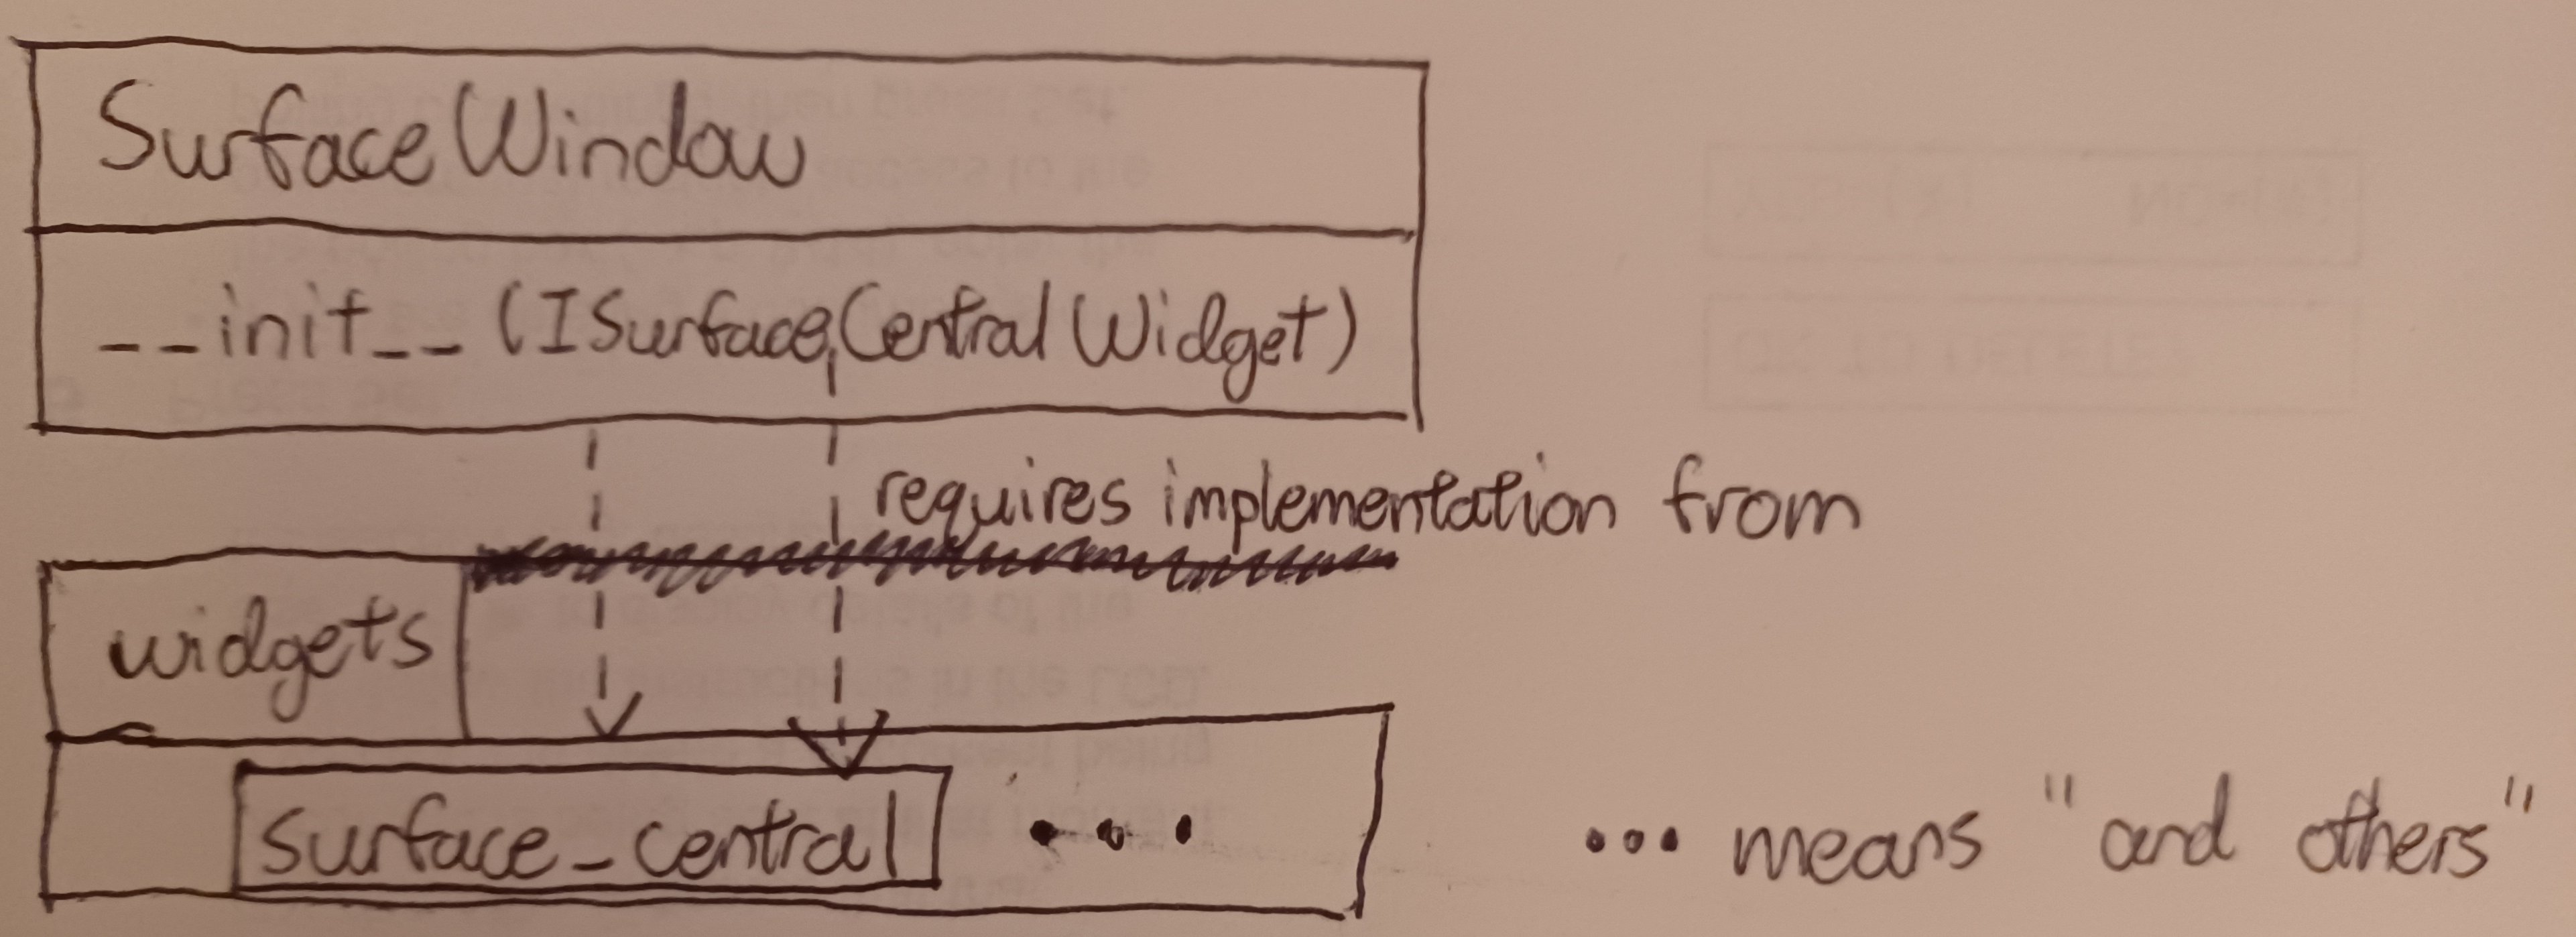 SurfaceWindow
__init__(ISurfaceCentralWidget)
requires implementation from
widgets
surface_central ...
... means "and others"